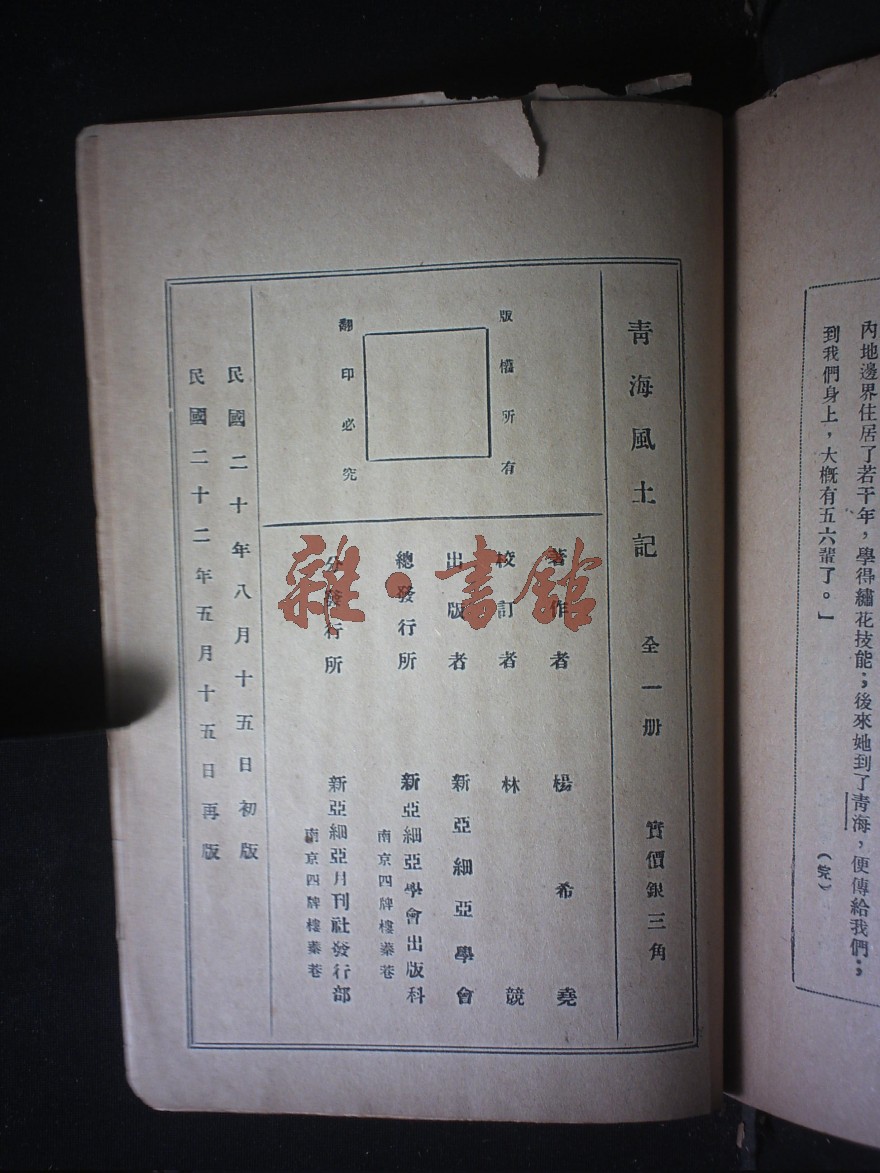 內地邊界住居了若干年，學得繡花技能；後來她到了青海，便傳給我們；
到我們身上，大概有五六輩了。」
（完）
青海風土記 全一册 實價銀三角
版權所有
翻印必究
著作者 楊希堯
校訂者 林競
出版者 新亞細亞學會
總發行所 新亞細亞學會出版科
南京四牌樓蓁巷
分發行所 新亞細亞月刊社發行部
南京四牌樓蓁巷
民國二十年八月十五日初版
民國二十二年五月十五日再版
雜·書館